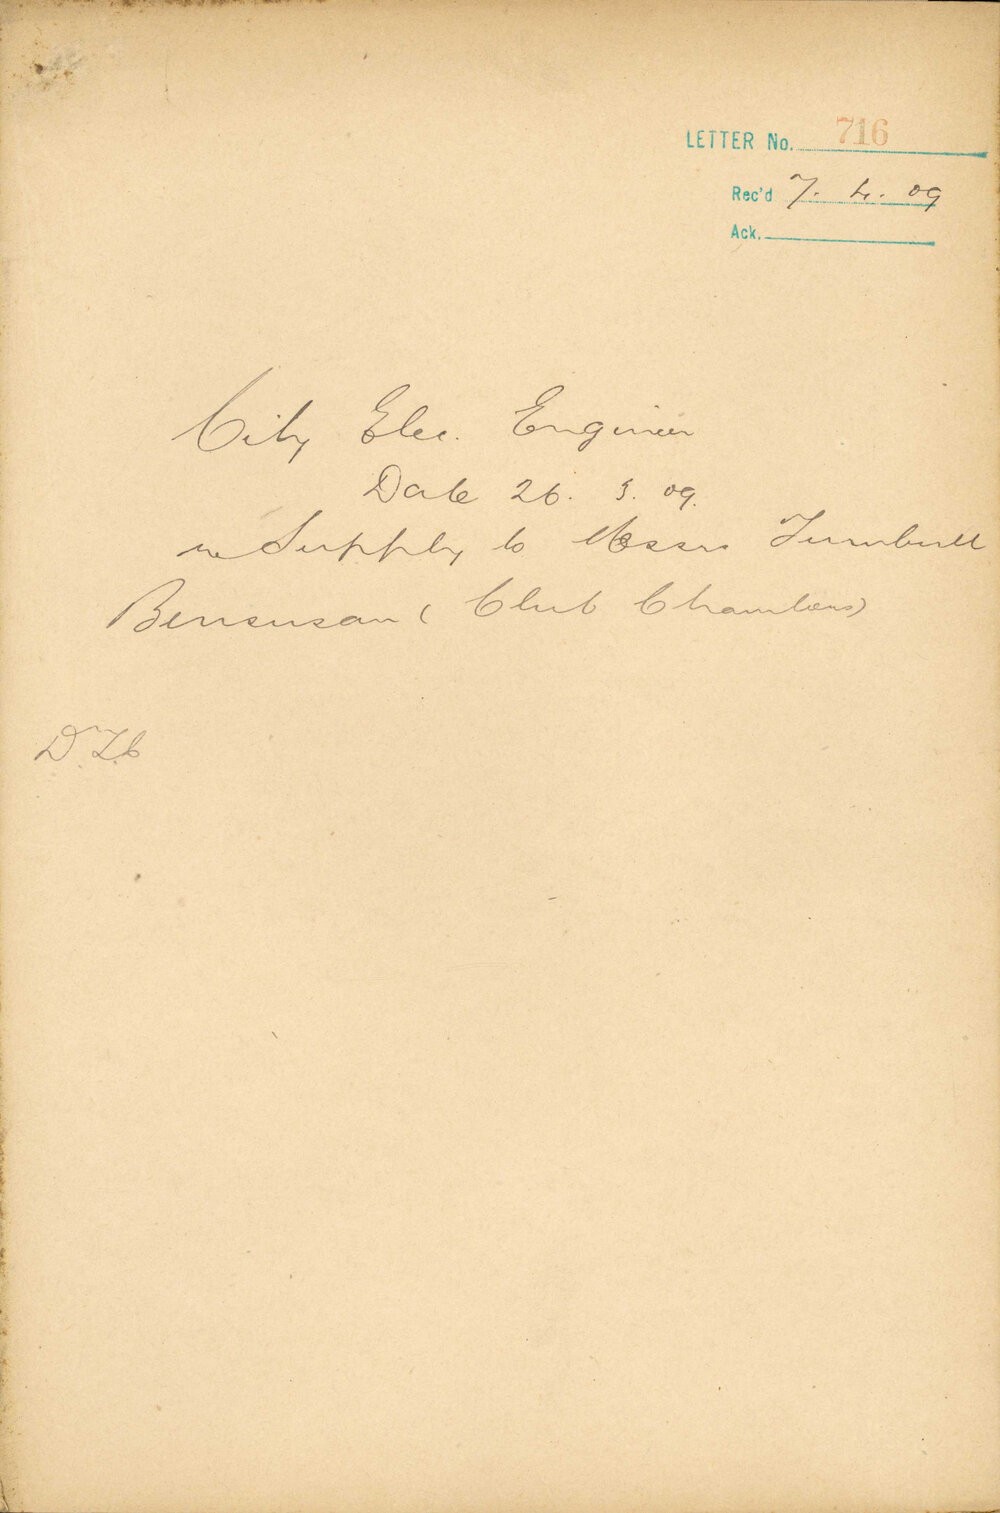 LETTER No. 716
Rec'd 7. 4. 09
Ack.
City Elec. Engineer
Date 26. 3. 09.
re Supply to Messrs Turnbull
Bensusan (Club Chambers)